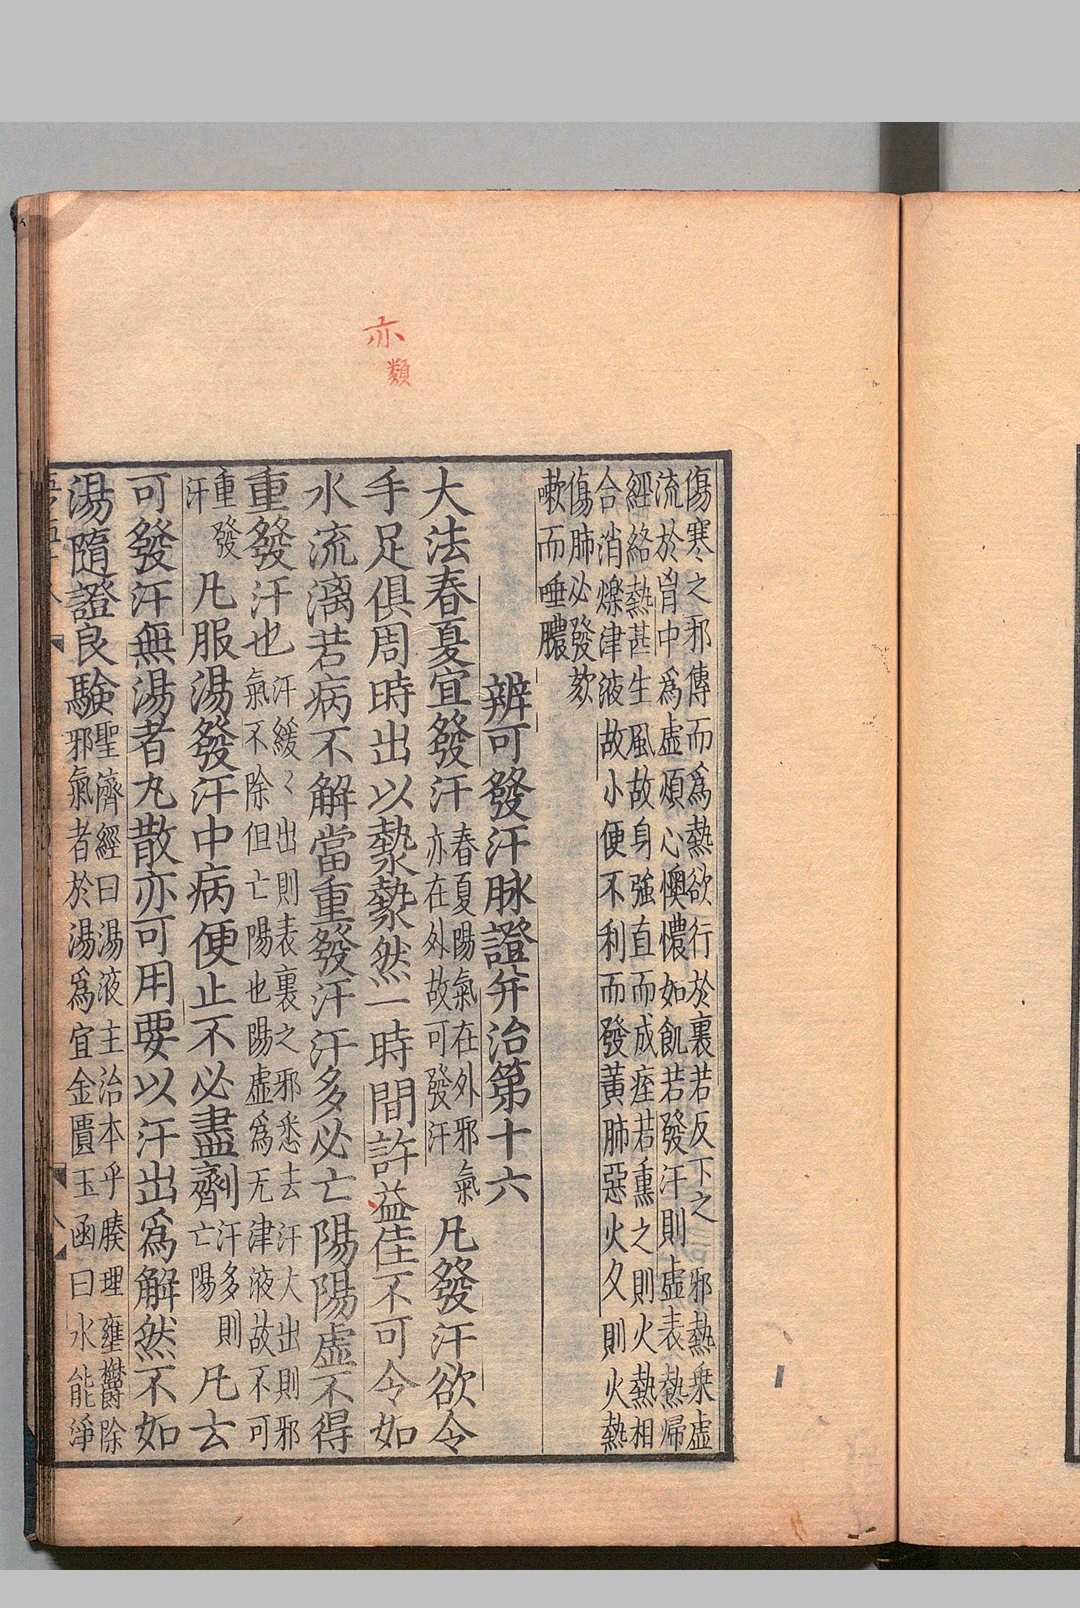 亦
類
傷寒之邪傳而爲熱欲行於裏若反下之邪熱乗虛
流於胷中爲虛煩心懊憹如飢若發汗則虛表熱歸
經絡熱甚生風故身強直而成痓若熏之則火熱相
合消爍津液故小便不利而發黃肺惡火久則火熱
傷肺必發欬
嗽而唾膿
辨可發汗脉證并治第十六
大法春夏宜發汗春夏陽氣在外邪氣亦在外故可發汗凡發汗欲令
手足俱周時出以漐漐然一時間許益佳不可令如
水流漓若病不解當重發汗汗多必亡陽陽虛不得
重發汗也汗緩〻出則表裏之邪悉去汗大出則邪氣不除但亡陽也陽虛爲无津液故不可
重發汗凡服湯發汗中病便止不必盡劑汗多則亡陽凡去
可發汗無湯者丸散亦可用要以汗出爲解然不如
湯隨證良驗聖濟經曰湯液主治本乎腠理壅鬱除邪氣者於湯爲宜金匱玉函曰水能淨